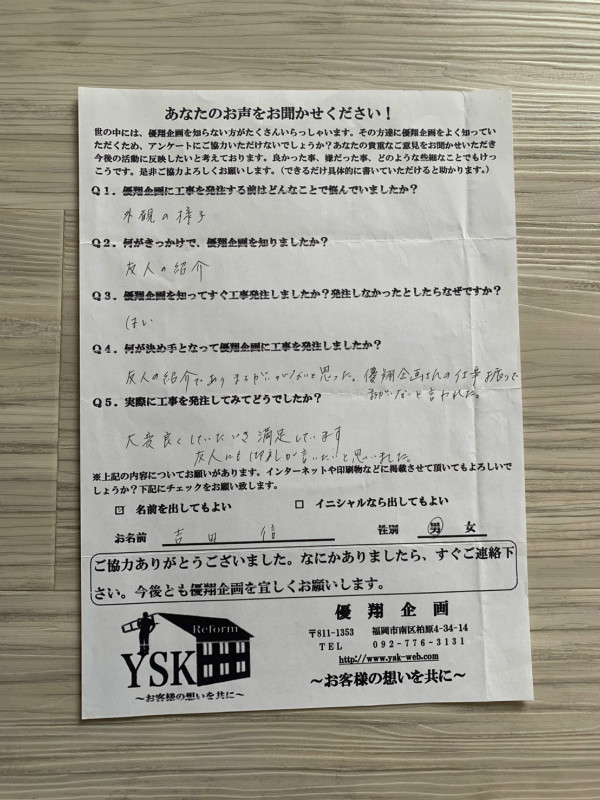 あなたのお声をお聞かせください！
世の中には、優翔企画を知らない方がたくさんいらっしゃいます。その方達に優翔企画をよく知ってい
ただくため、アンケートにご協力いただけないでしょうか？あなたの貴重なご意見をお聞かせいただき
今後の活動に反映したいと考えております。良かった事、嫌だった事、どのような些細なことでもけっ
こうです。是非ご協力よろしくお願いします。（できるだけ具体的に書いていただけると助かります。）
Q1．優翔企画に工事を発注する前はどんなことで悩んでいましたか？
外観の様子
Q2．何がきっかけで、優翔企画を知りましたか？
友人の紹介
Q3．優翔企画を知ってすぐ工事発注しましたか？発注しなかったとしたらなぜですか？
はい
Q4．何が決め手となって優翔企画に工事を発注しましたか？
友人の紹介でありまちがいがないと思った。優翔企画さんの仕事
まちがないと言われた。
Q5．実際に工事を発注してみてどうでしたか？
大変良くしていただき満足しています
友人にもお礼が言いたいと思いました。
※上記の内容についてお願いがあります。インターネットや印刷物などに掲載させて頂いてもよろしいで
しょうか？下記にチェックをお願い致します。
☑ 名前を出してもよい □ イニシャルなら出してもよい
お名前 吉田 信 性別 男 女
ご協力ありがとうございました。なにかありましたら、すぐご連絡下
さい。今後とも優翔企画を宜しくお願いします。
Reform
YSK
～お客様の想いを共に～
優翔企画
〒811-1353 福岡市南区柏原4-34-14
TEL 092-776-3131
http://www.ysk-web.com
～お客様の想いを共に～